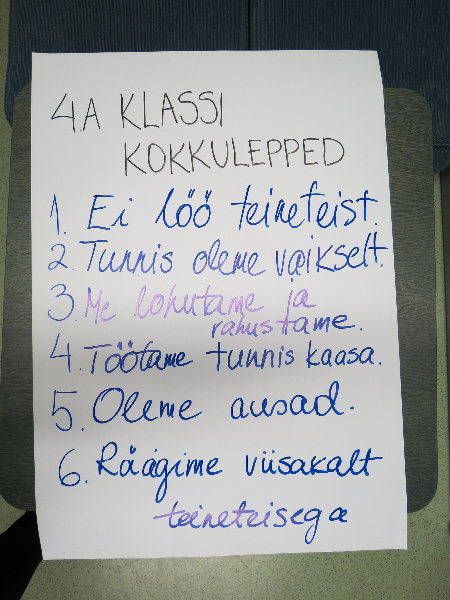 4.A KLASSI
KOKKULEPPED
1. Ei löö teineteist.
2. Tunnis oleme vaikselt.
3. Me lohutame ja
rahustame.
4. Töötame tunnis kaasa.
5. Oleme ausad.
6. Räägime viisakalt
teineteisega